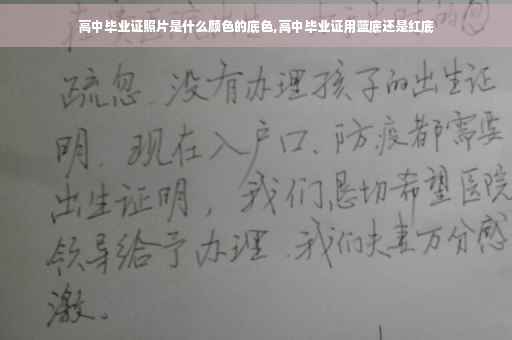 高中毕业证照片是什么颜色的底色,高中毕业证用蓝底还是红底
疏忽.没有办理孩子的出生证
明.现在入户口、防疫都需要
出生证明,我们恳切希望医院
领导给予办理.我们夫妻万分感
激。